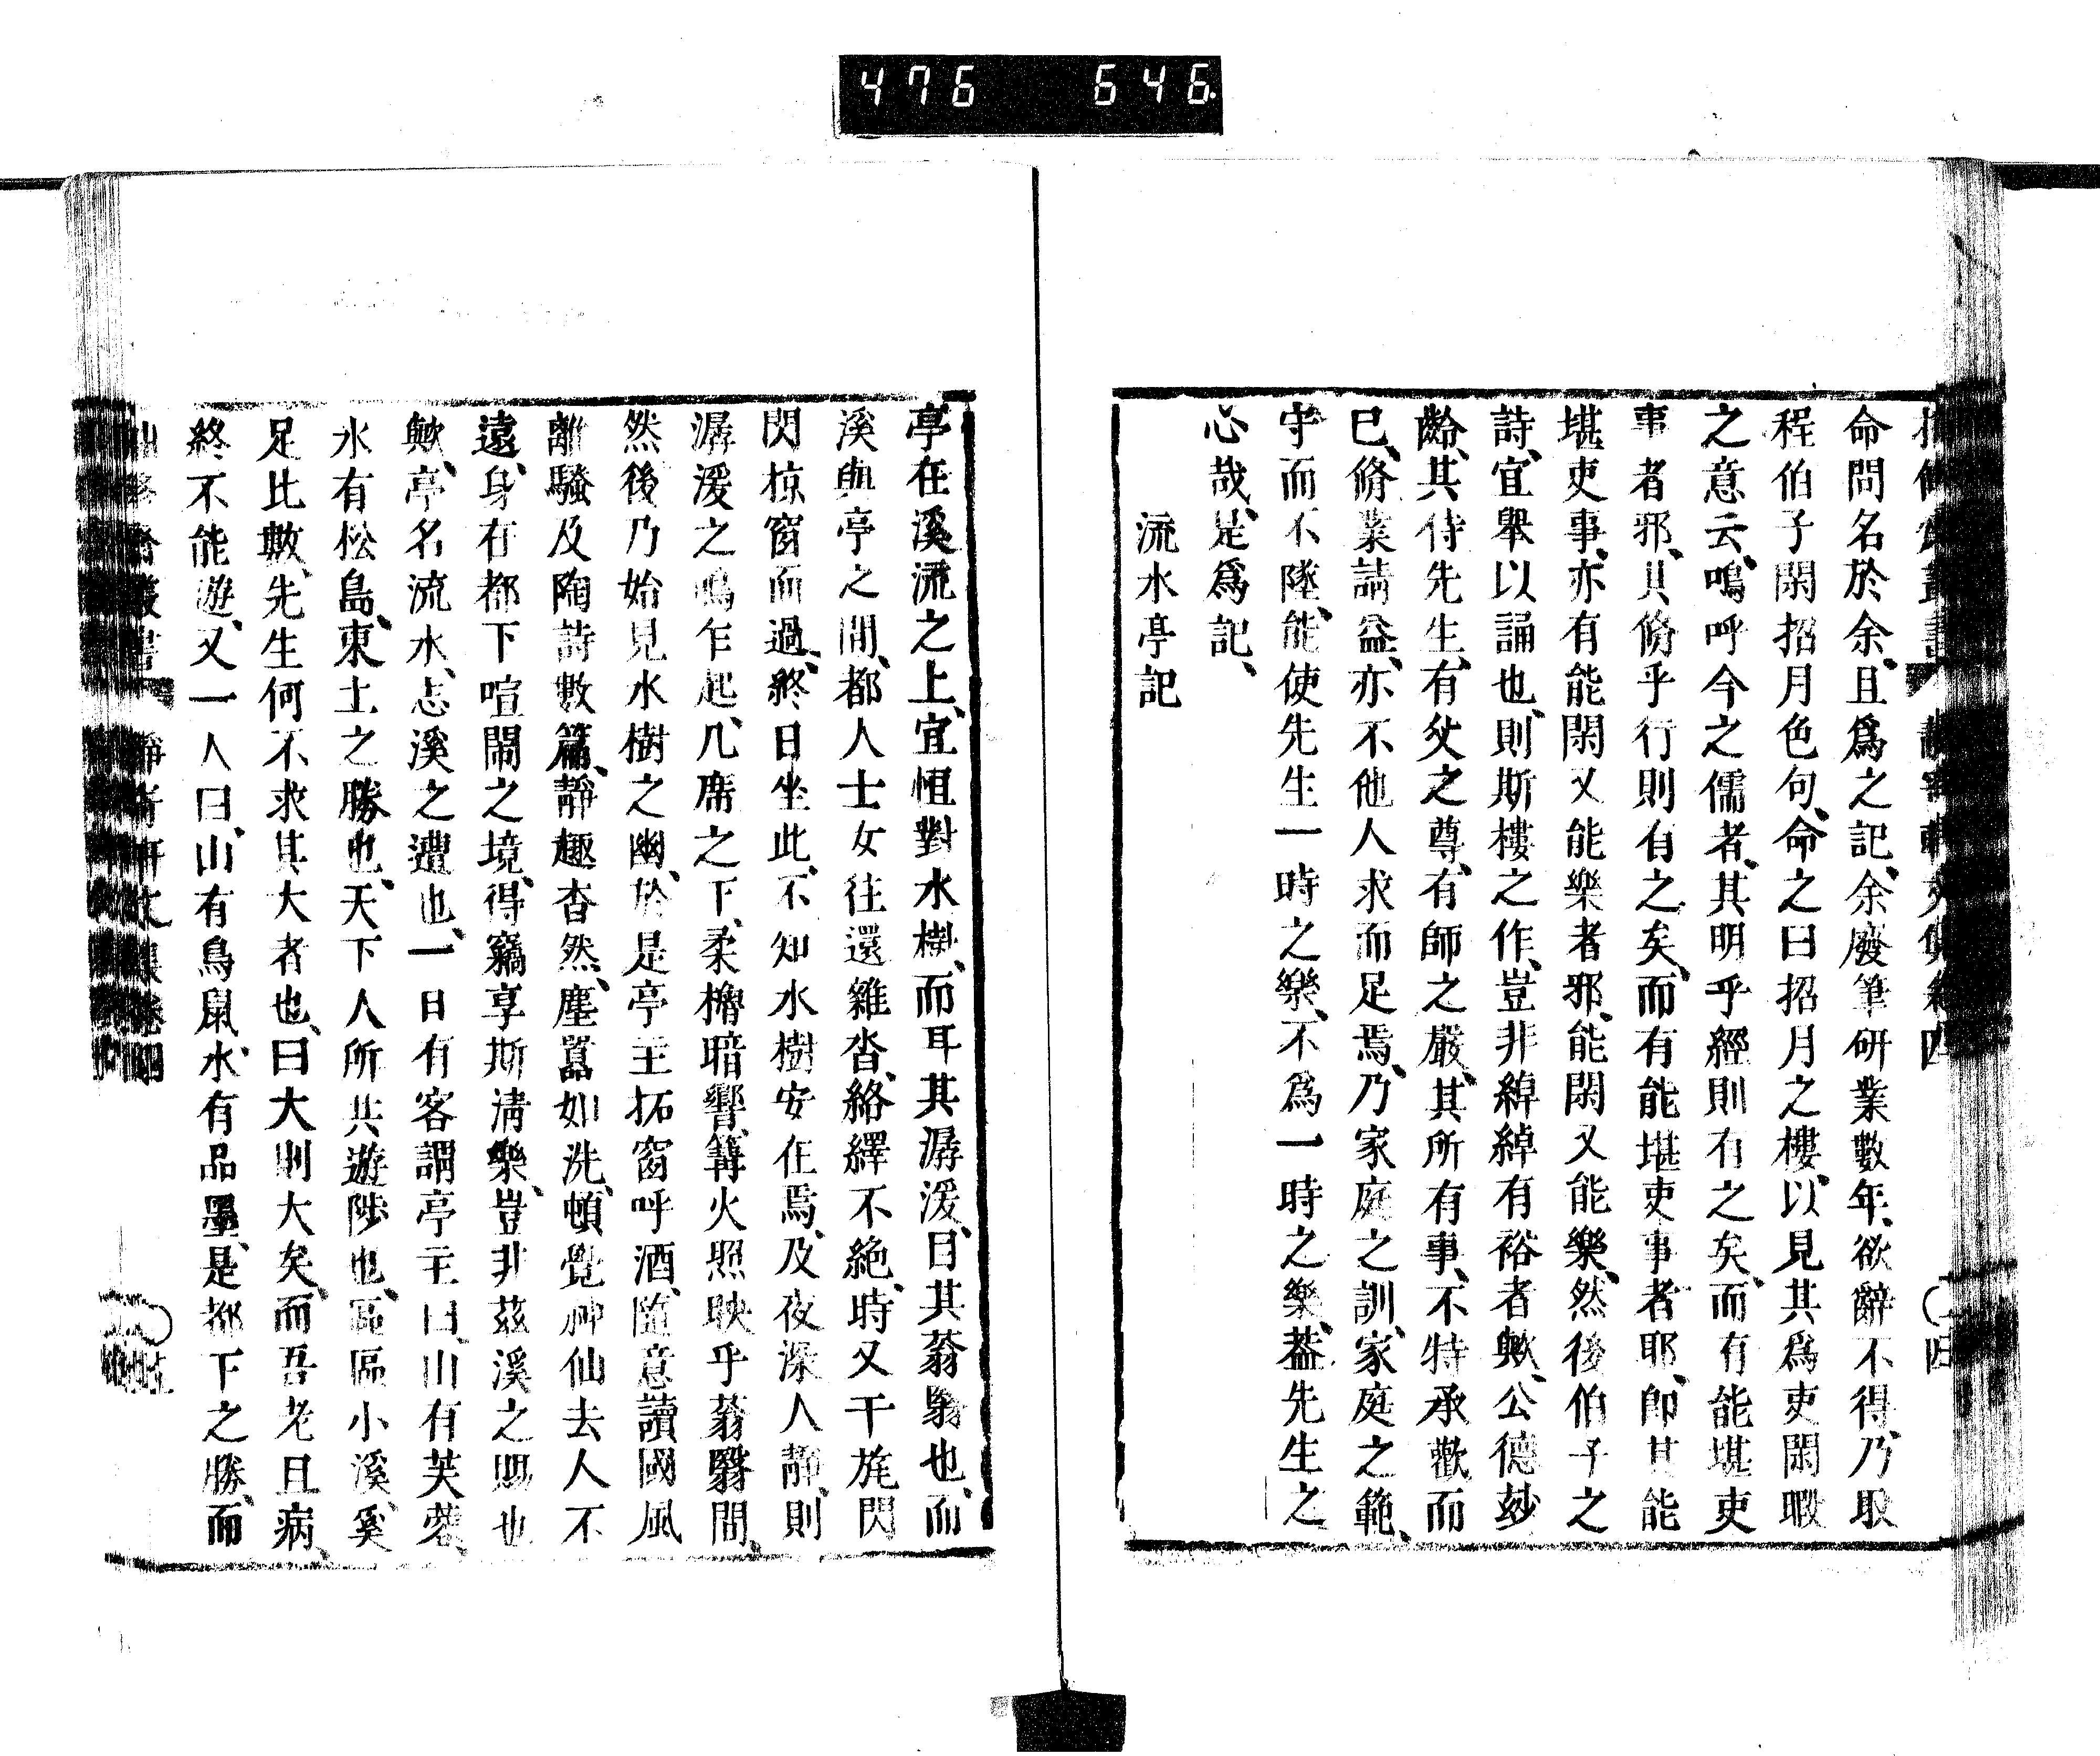 476 646
命問名於余、且爲之記、余廢筆研業數年、欲辭不得、乃取
程伯子閑招月色句、命之曰招月之樓、以見其爲吏閑暇
之意云、嗚呼今之儒者、其明乎經則有之矣、而有能堪吏
事者邪、其脩乎行則有之矣、而有能堪吏事者耶、即其能
堪吏事、亦有能閑又能樂者邪、能閑又能樂、然後伯子之
詩、宜舉以誦也、則斯樓之作、豈非綽綽有裕者歟、公德玅
齡、其侍先生、有父之尊、有師之嚴、其所有事、不特承歡而
已、脩業請益、亦不他人求而足焉、乃家庭之訓、家庭之範、
守而不墜、能使先生一時之樂、不爲一時之樂、葢先生之
心哉、是爲記、
流水亭記
亭在溪流之上、宜恒對水樹、而耳其潺湲、目其蓊翳也、而
溪與亭之間、都人士女往還雜沓、絡繹不絶、時又干旄閃
閃掠窗而過、終日坐此、不知水樹安在焉、及夜深人靜、則
潺湲之鳴乍起、几席之下、柔櫓暗響、篝火照映乎蓊翳間、
然後乃始見水樹之幽、於是亭主拓窗呼酒、隨意讀國風
離騷及陶詩數篇、靜趣杳然、塵囂如洗、頓覺神仙去人不
遠、身在都下喧鬧之境、得竊享斯淸樂、豈非茲溪之賜也
歟、亭名流水、志溪之遭也、一日有客謂亭主曰、山有芙蓉、
水有松島、東土之勝也、天下人所共遊陟也、區區小溪、奚
足比數、先生何不求其大者也、曰大則大矣、而吾老且病、
終不能遊、又一人曰、山有鳥鼠、水有品墨、是都下之勝、而